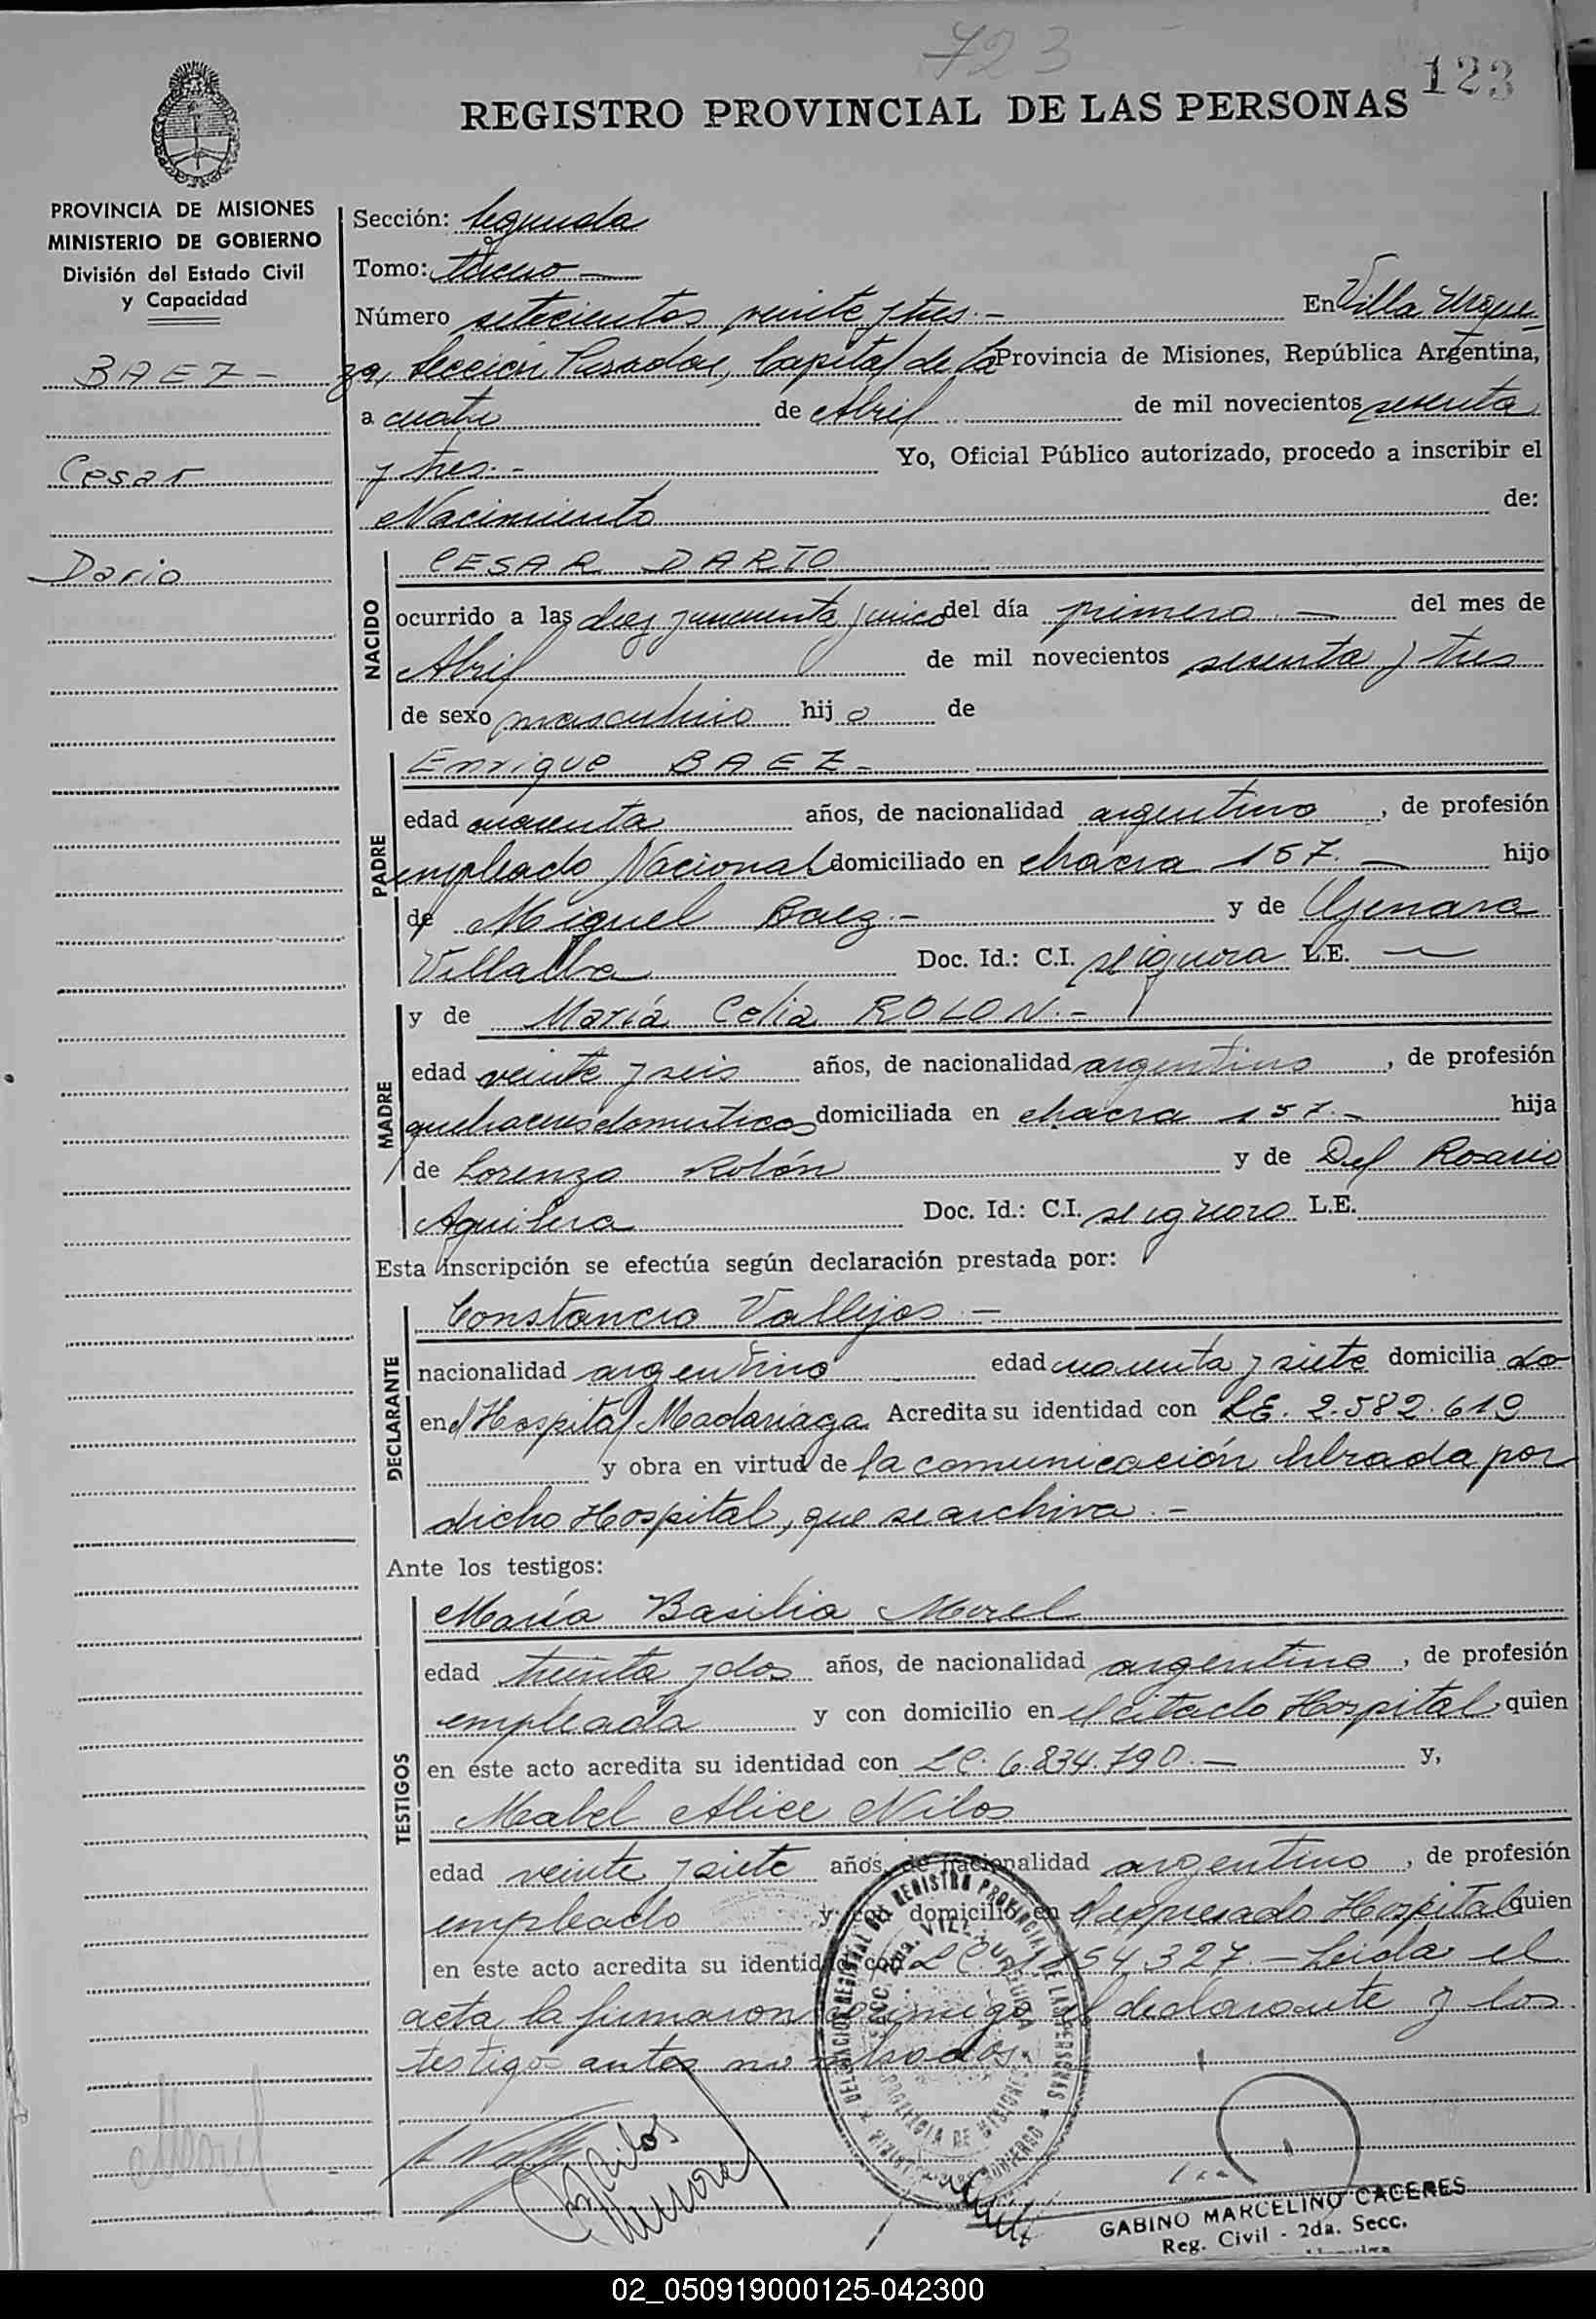 723
123
REGISTRO PROVINCIAL DE LAS PERSONAS
PROVINCIA DE MISIONES
MINISTERIO DE GOBIERNO
División del Estado Civil
y Capacidad
BAEZ -
Cesar
Dario
Sección: Segunda
Tomo: tercero
Número setecientos veinte y tres.- En Villa Urqui-
za, Sección Posadas, Capital de la Provincia de Misiones, República Argentina,
a cuatro de Abril de mil novecientos sesenta
y tres.- Yo, Oficial Público autorizado, procedo a inscribir el
Nacimiento de:
NACIDO
CESAR DARIO
ocurrido a las diez y cincuenta y cinco del día primero del mes de
Abril de mil novecientos sesenta y tres
de sexo masculino hijo de
PADRE
Enrique BAEZ-
edad cuarenta años, de nacionalidad argentino, de profesión
empleado Nacional domiciliado en chacra 157.- hijo
de Miguel Baez.- y de Genara
Villalba Doc. Id.: C.I. se ignora L.E. —
MADRE
y de María Celia ROLON.-
edad veinte y seis años, de nacionalidad argentino, de profesión
quehaceres domesticos domiciliada en chacra 157.- hija
de Lorenzo Rolón y de Del Rosario
Aguilera Doc. Id.: C.I. se ignora L.E.
Esta inscripción se efectúa según declaración prestada por:
DECLARANTE
Constancio Vallejos.-
nacionalidad argentino edad cuarenta y siete domiciliado
en el Hospital Madariaga Acredita su identidad con LE. 2.582.619
y obra en virtud de la comunicación librada por
dicho Hospital, que se archiva.-
Ante los testigos:
TESTIGOS
María Basilia Morel
edad treinta y dos años, de nacionalidad argentino, de profesión
empleada y con domicilio en el citado Hospital quien
en este acto acredita su identidad con LC. 6.834.790.- y,
Mabel Alice Nilos
edad veinte y siete años, de nacionalidad argentino, de profesión
empleado y con domicilio en el expresado Hospital quien
en este acto acredita su identidad con LC. 54.327.- Leida el
acta la firmaron conmigo el declarante y los
testigos antes nombrados.
DELEGACION REGIONAL DEL REGISTRO PROVINCIAL DE LAS PERSONAS
SECC. 2da. VILLA URQUIZA
PROVINCIA DE MISIONES
MINISTERIO DE GOBIERNO
GABINO MARCELINO CACERES
Reg. Civil - 2da. Secc.
02_050919000125-042300